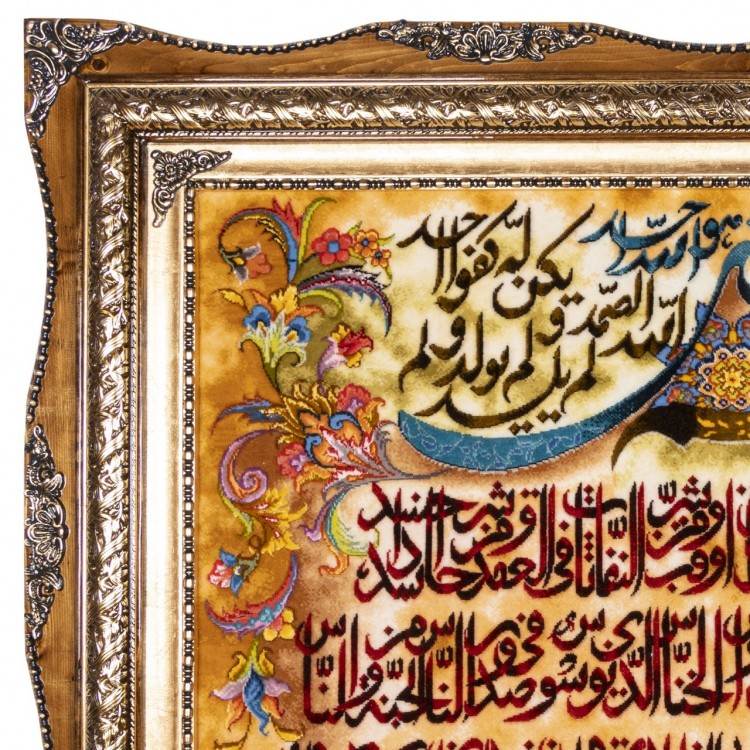 هو الله احد
الله الصمد لم يلد و لم يولد و لم
يكن له كفوا احد
وقب و من شر النفاثات فى العقد و من شر حاسد اذا حسد
الخناس الذى يوسوس فى صدور الناس من الجنة و الناس